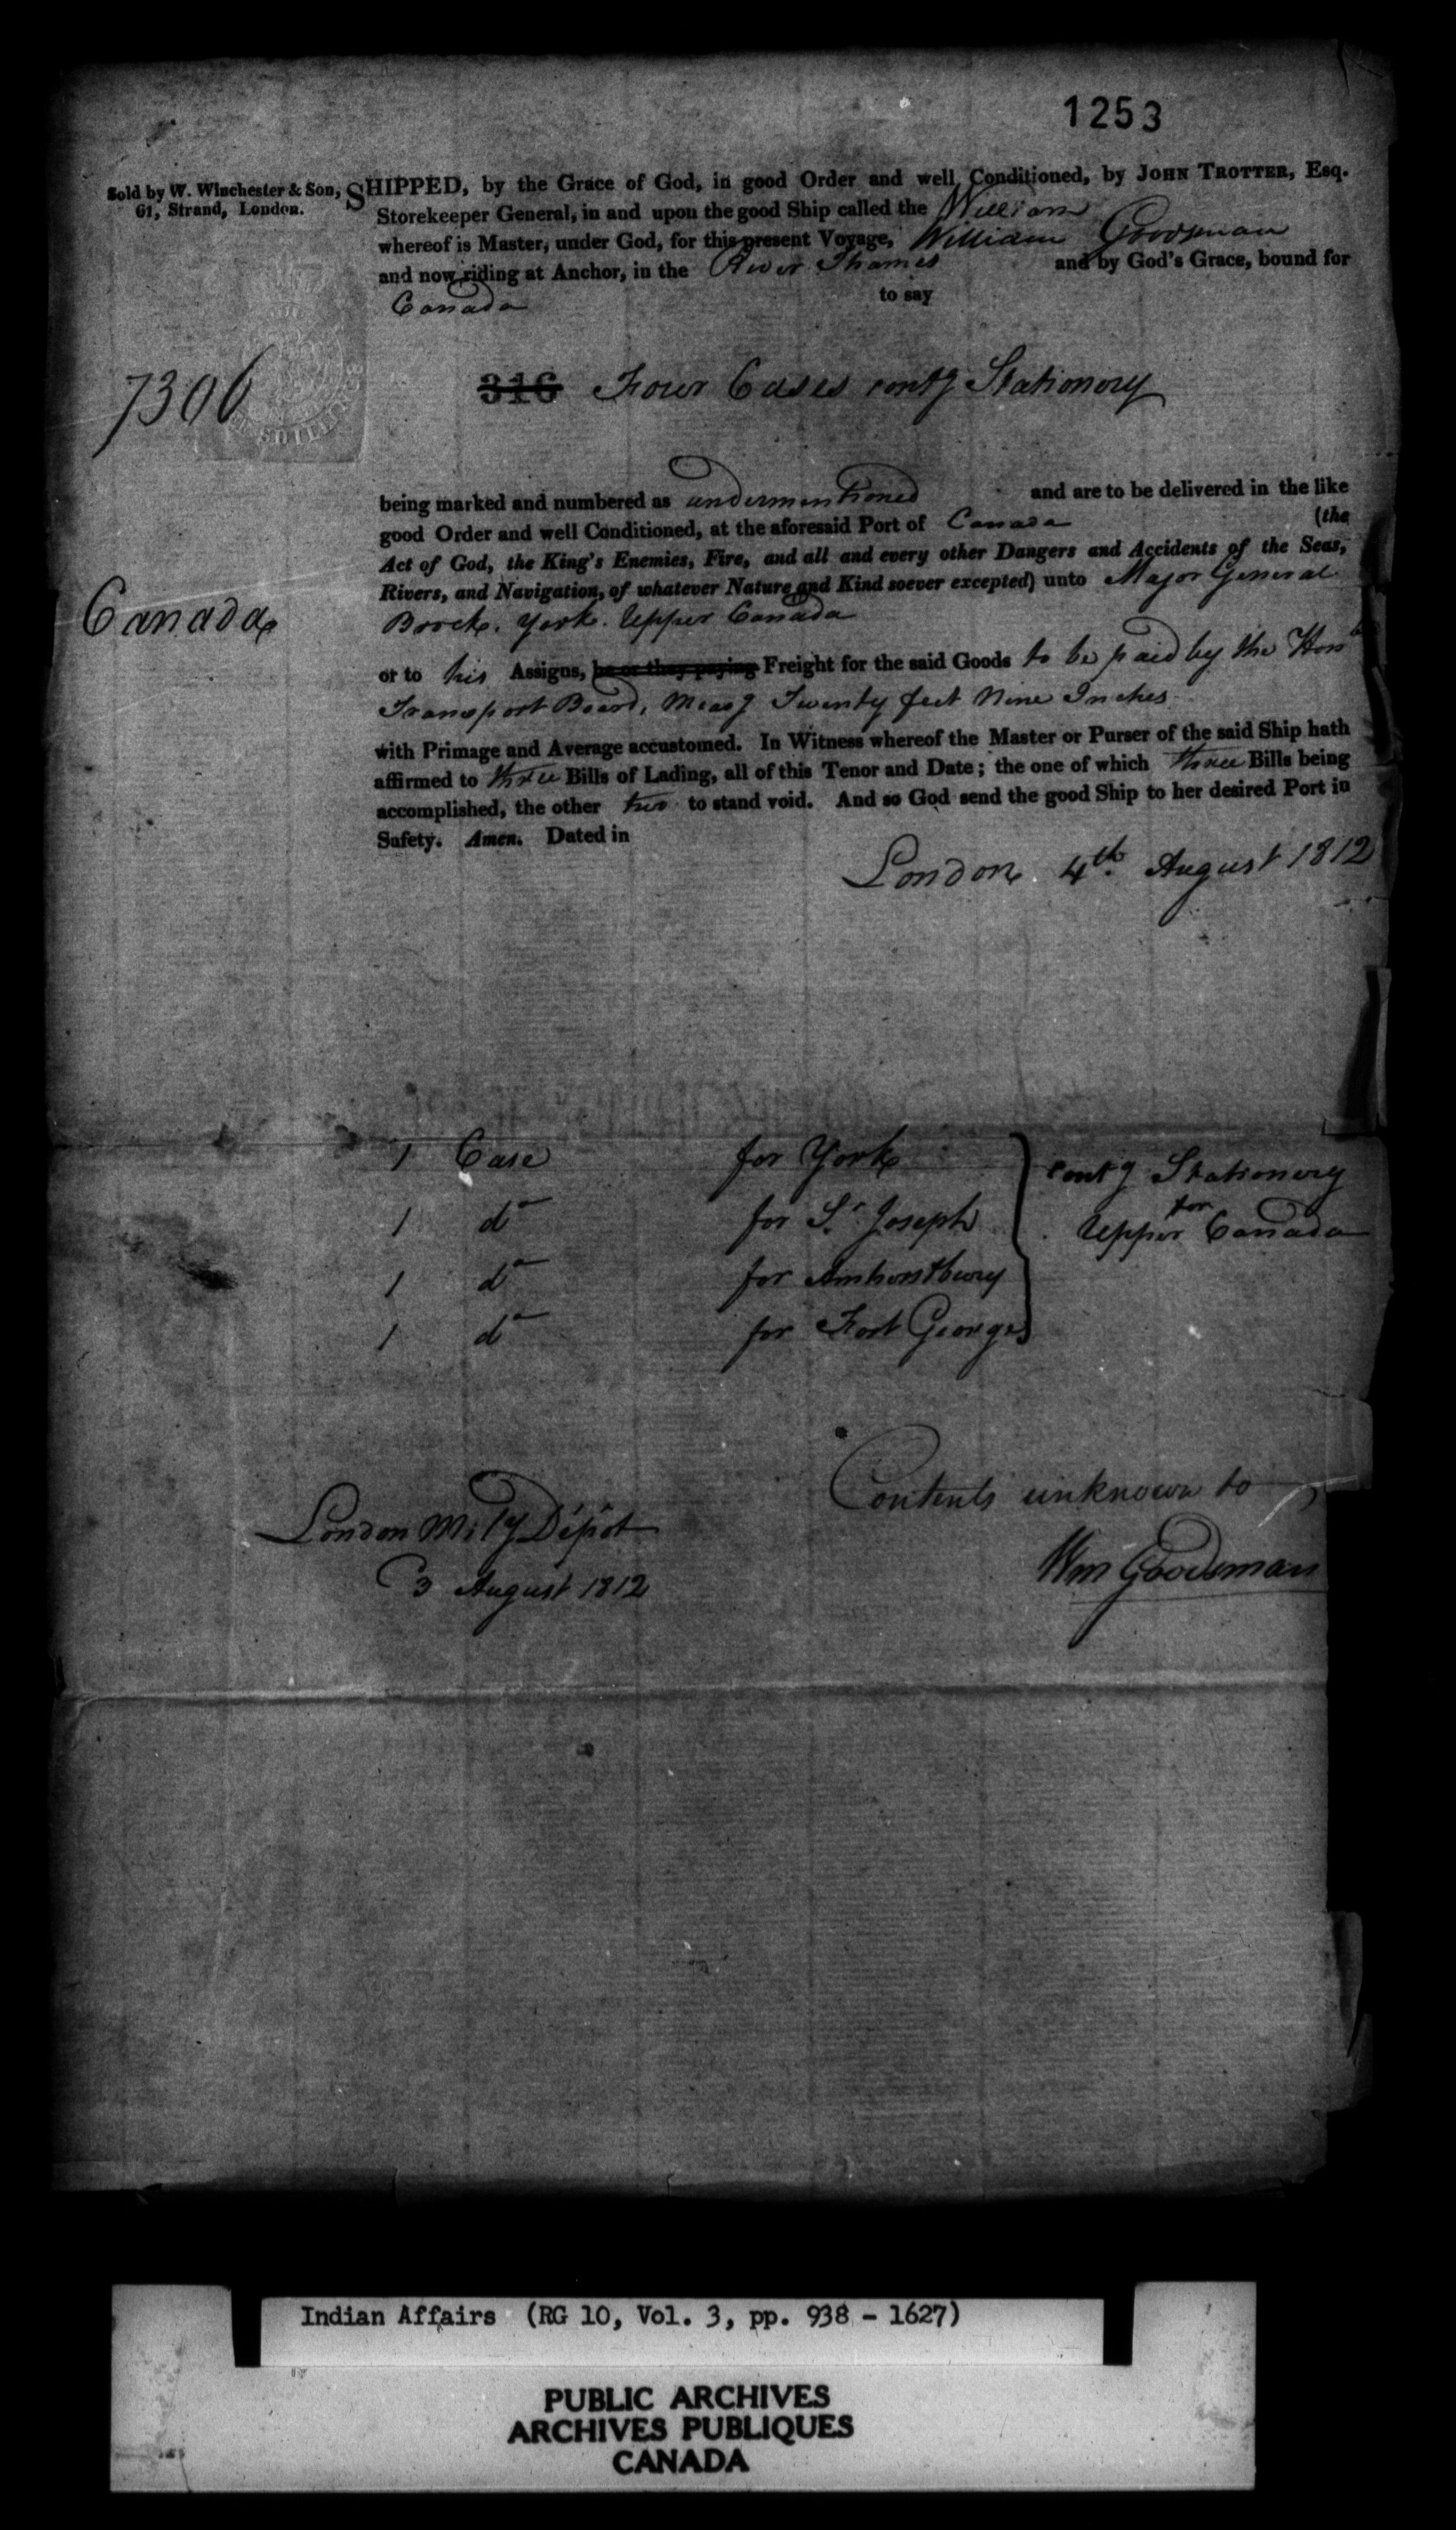 1253
Sold by W. Winchester & Son,
61, Strand, London.
SHIPPED, by the Grace of God, in good Order and well Conditioned, by JOHN TROTTER, Esq.
Storekeeper General, in and upon the good Ship called the William
whereof is Master, under God, for this present Voyage, William Goodsman
and now riding at Anchor, in the River Thames and by God's Grace, bound for
Canada to say
7306
316 Four Cases contg Stationery
being marked and numbered as undermentioned and are to be delivered in the like
good Order and well Conditioned, at the aforesaid Port of Canada (the
Act of God, the King's Enemies, Fire, and all and every other Dangers and Accidents of the Seas,
Rivers, and Navigation, of whatever Nature and Kind soever excepted) unto Major General
Canada
Brock. York. Upper Canada
or to his Assigns, he or they paying Freight for the said Goods to be paid by the Honble
Transport Board, Measg Twenty feet Nine Inches
with Primage and Average accustomed. In Witness whereof the Master or Purser of the said Ship hath
affirmed to three Bills of Lading, all of this Tenor and Date; the one of which three Bills being
accomplished, the other two to stand void. And so God send the good Ship to her desired Port in
Safety. Amen. Dated in
London 4th. August 1812
1 Case for York
1 do for St. Joseph
1 do for Amherstburg
1 do for Fort George
contg Stationery
for
Upper Canada
Contents unknown to
Wm Goodsman
London Mily Depôt
3 August 1812
Indian Affairs (RG 10, Vol. 3, pp. 938 - 1627)
PUBLIC ARCHIVES
ARCHIVES PUBLIQUES
CANADA